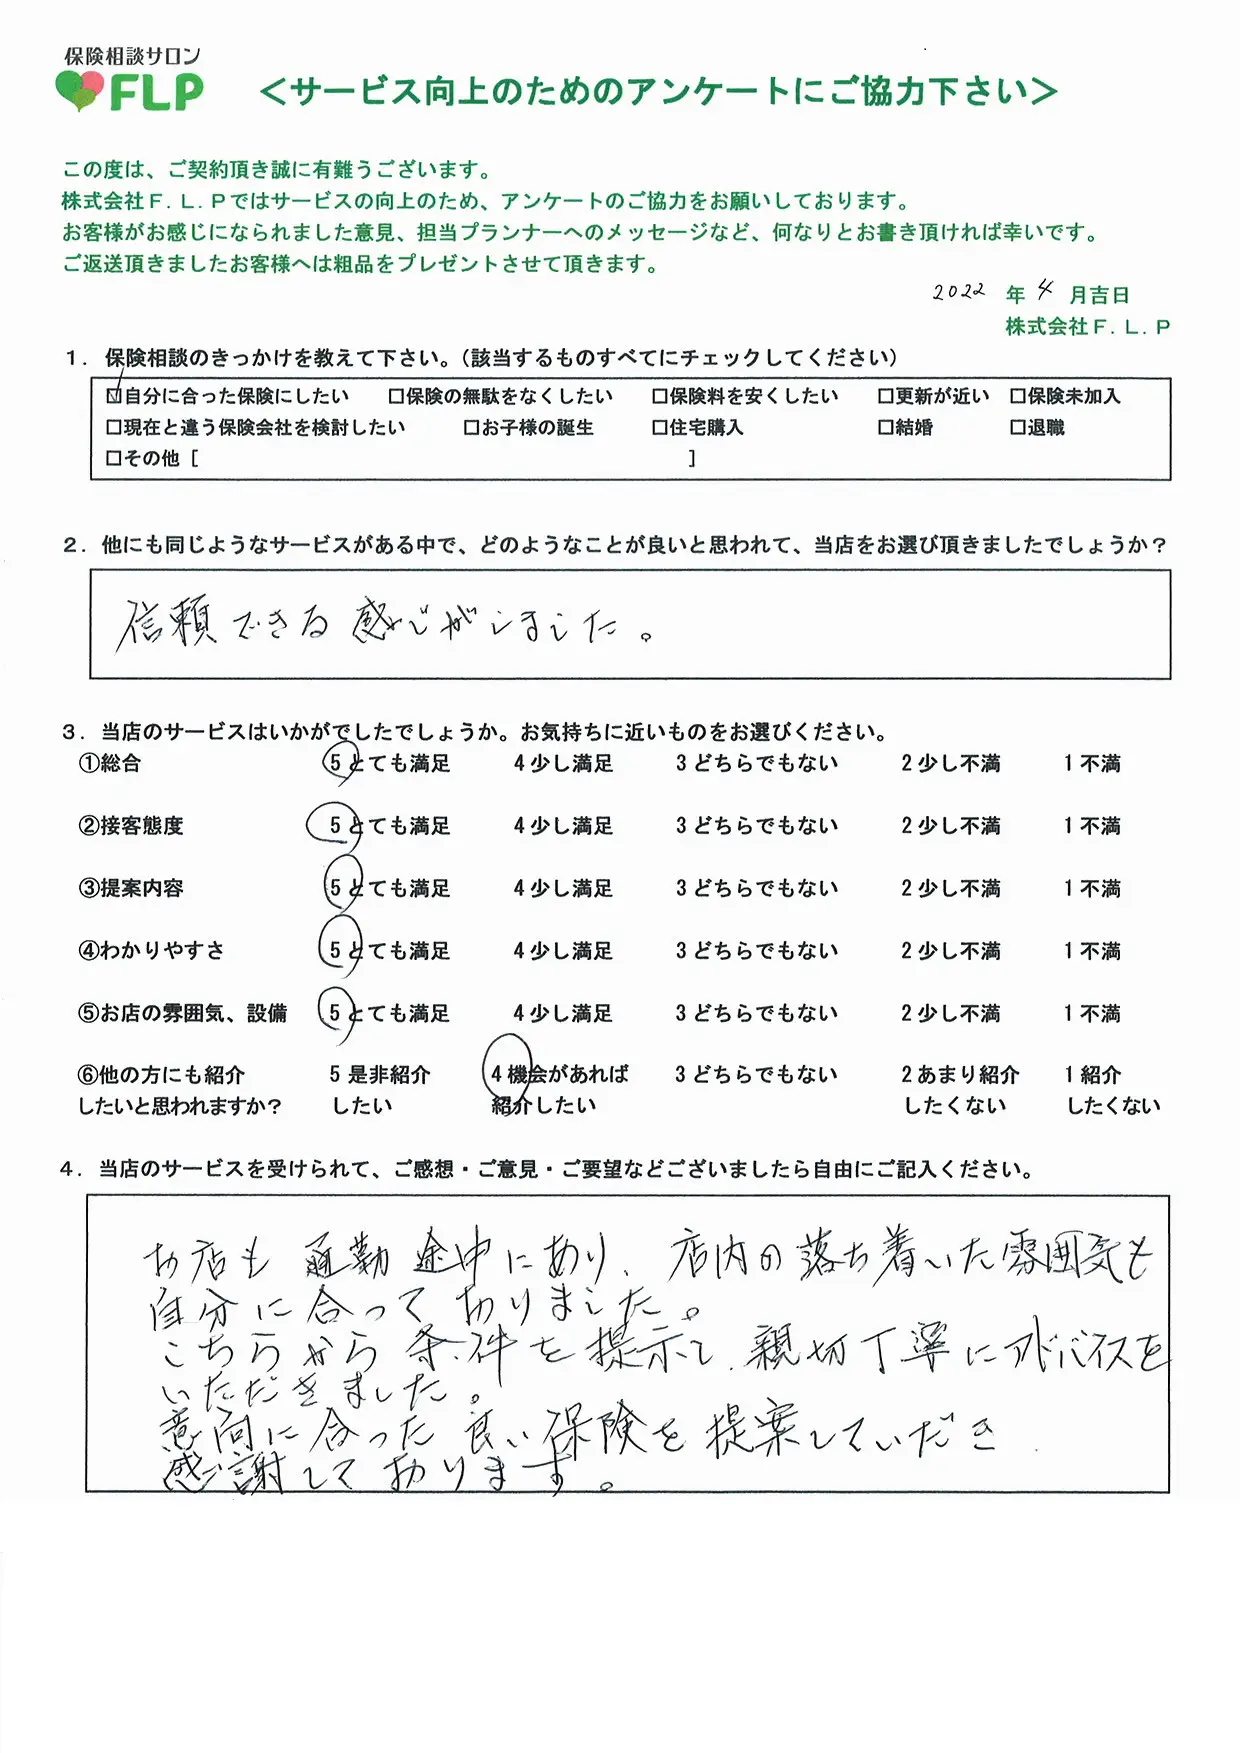 保険相談サロン
FLP
＜サービス向上のためのアンケートにご協力下さい＞
この度は、ご契約頂き誠に有難うございます。
株式会社Ｆ．Ｌ．Ｐではサービスの向上のため、アンケートのご協力をお願いしております。
お客様がお感じになられました意見、担当プランナーへのメッセージなど、何なりとお書き頂ければ幸いです。
ご返送頂きましたお客様へは粗品をプレゼントさせて頂きます。
2022 年 4 月吉日
株式会社Ｆ．Ｌ．Ｐ
１．保険相談のきっかけを教えて下さい。（該当するものすべてにチェックしてください）
☑自分に合った保険にしたい □保険の無駄をなくしたい □保険料を安くしたい □更新が近い □保険未加入
□現在と違う保険会社を検討したい □お子様の誕生 □住宅購入 □結婚 □退職
□その他［ ］
２．他にも同じようなサービスがある中で、どのようなことが良いと思われて、当店をお選び頂きましたでしょうか？
信頼できる感じがしました。
３．当店のサービスはいかがでしたでしょうか。お気持ちに近いものをお選びください。
①総合 5 とても満足 4 少し満足 3 どちらでもない 2 少し不満 1 不満
②接客態度 5 とても満足 4 少し満足 3 どちらでもない 2 少し不満 1 不満
③提案内容 5 とても満足 4 少し満足 3 どちらでもない 2 少し不満 1 不満
④わかりやすさ 5 とても満足 4 少し満足 3 どちらでもない 2 少し不満 1 不満
⑤お店の雰囲気、設備 5 とても満足 4 少し満足 3 どちらでもない 2 少し不満 1 不満
⑥他の方にも紹介 5 是非紹介 4 機会があれば 3 どちらでもない 2 あまり紹介 1 紹介
したいと思われますか？ したい 紹介したい したくない したくない
４．当店のサービスを受けられて、ご感想・ご意見・ご要望などございましたら自由にご記入ください。
お店も通勤途中にあり、店内の落ち着いた雰囲気も
自分に合っておりました。
こちらから条件を提示し、親切丁寧にアドバイスを
いただきました。
意向に合った良い保険を提案していだき
感謝しております。